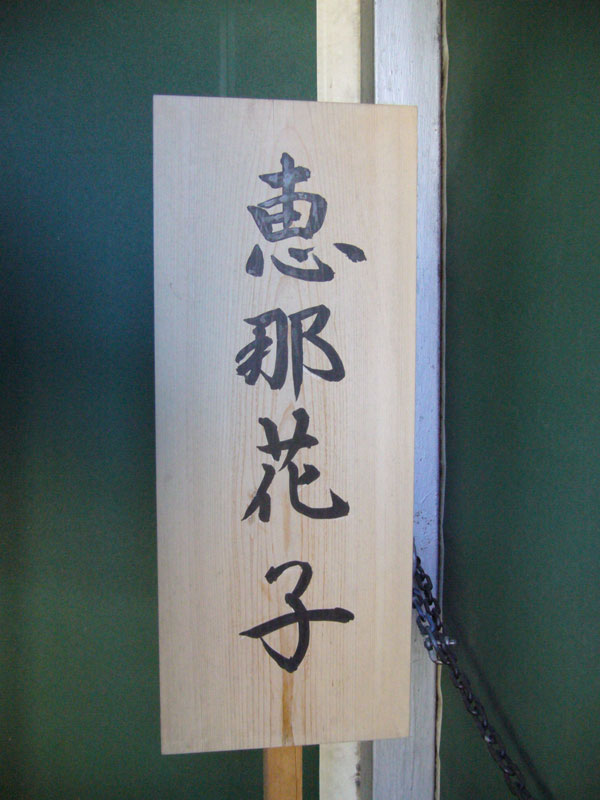 恵那花子